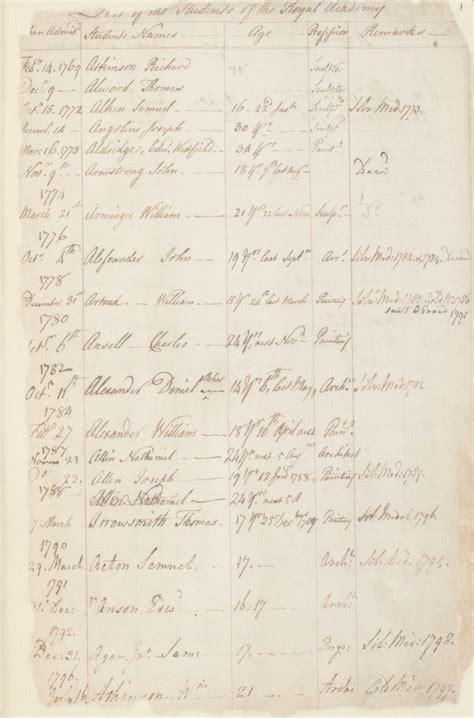 List of the Students of the Royal Academy 1
Admis. Students Names Age Profession Remarks
Feb. 14. 1769 Atkinson Richard
Dec. 9 Alwood Thomas Sculptor
Oct. 15. 1772 Alken Samuel 16. 22d last Sculptr Silv. Med. 1773.
Decemb. 14 Angolini Joseph 30 Yrs Sculptr
Mar. 16. 1773 Aldridge, Edwd. 34 Yrs Paintr
Novr. 9th Armstrong John 18 Yrs last Dead
1774
March 21st Arminger William 21 Yrs 22 last Novr Sculpr Do.
1776
Octr. 4th Alefounder John 19 Yrs last Septr Arct. Silv. Med. 1782. 1784. Dead
1778
December 31st Artaud William 15 Yrs 24th last March Painting Silv. Med. 1783. Gold Do. 1786
1795
1780
Octr. 6th Ansell Charles 24 Yrs next Novr. Painting
1782
Octr. 11th Alexander Daniel Asher 14 Yrs 6th last May Archt. Silv. Med. 1782.
1784
Feb. 27 Alexander William 18 Yrs 10th April next Paintr.
1787
Novem 23 Allin Nathaniel 24 Yrs next 5 Aug Architect
Do 23. Allin Joseph 19 Yrs 12 Jany 1788 Painting Silv. Med. 1789.
1788 Allin Nathaniel 24 Yrs next 5 A
7 March Arrowsmith Thomas. 17 Yrs 25 Decr Painting Sil. Medal 1796.
1790
29. March Acton Samuel 17. Archt. Sil. Med. 1794.
1791
Dec: I'Anson Edwd 16-17 Archt.
1792.
Dec: 21. Agar Jno. Saml 17. Engr. Sil. Med: 1798.
1796.
16 Atkinson Wm 21 Archt Gold Med. 1797.